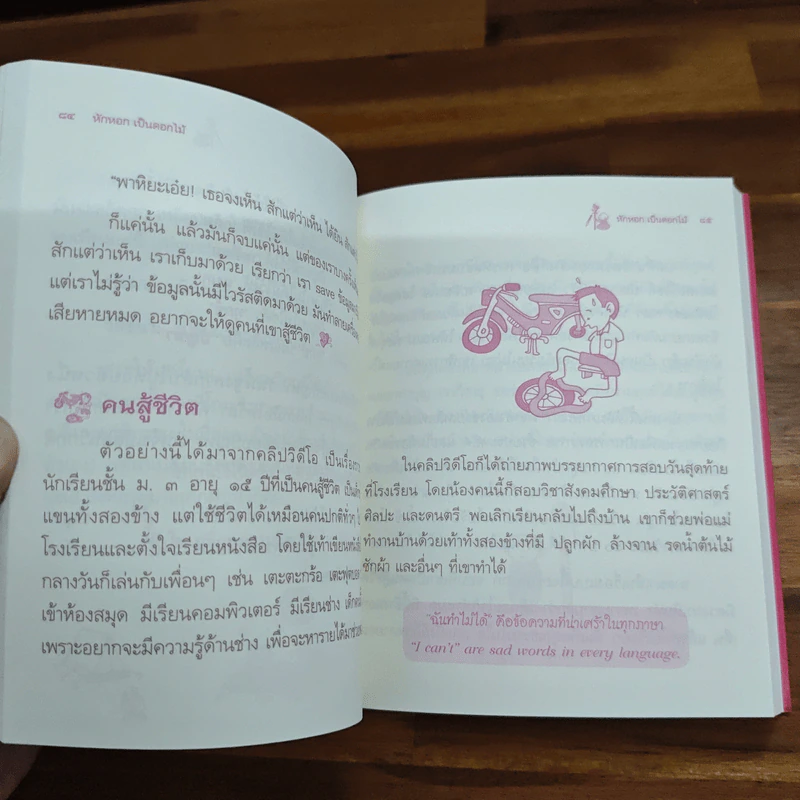 ๘๔ หักหอก เป็นดอกไม้
"พาหิยะเอ๋ย! เธอจงเห็น สักแต่ว่าเห็น ได้ยิน
ก็แค่นั้น แล้วมันก็จบแค่นั้น แต่ของเราบางครั้ง
สักแต่ว่าเห็น เราเก็บมาด้วย เรียกว่า เรา save ข้อมูล
แต่เราไม่รู้ว่า ข้อมูลนั้นมีไวรัสติดมาด้วย มันทำลาย
เสียหายหมด อยากจะให้ดูคนที่เขาสู้ชีวิต
คนสู้ชีวิต
ตัวอย่างนี้ได้มาจากคลิปวิดีโอ เป็นเรื่อง
นักเรียนชั้น ม. ๓ อายุ ๑๕ ปีที่เป็นคนสู้ชีวิต
แขนทั้งสองข้าง แต่ใช้ชีวิตได้เหมือนคนปกติ
โรงเรียนและตั้งใจเรียนหนังสือ โดยใช้เท้าเขียน
กลางวันก็เล่นกับเพื่อนๆ เช่น เตะตะกร้อ
เข้าห้องสมุด มีเรียนคอมพิวเตอร์ มีเรียนช่าง
เพราะอยากจะมีความรู้ด้านช่าง เพื่อจะหารายได้มา
หักหอก เป็นดอกไม้ ๘๕
ในคลิปวิดีโอก็ได้ถ่ายภาพบรรยากาศการสอบวันสุดท้าย
ที่โรงเรียน โดยน้องคนนี้ก็สอบวิชาสังคมศึกษา ประวัติศาสตร์
ศิลปะ และดนตรี พอเลิกเรียนกลับไปถึงบ้าน เขาก็ช่วยพ่อแม่
ทำงานบ้านด้วยเท้าทั้งสองข้างที่มี ปลูกผัก ล้างจาน รดน้ำต้นไม้
ซักผ้า และอื่นๆ ที่เขาทำได้
"ฉันทำไม่ได้" คือข้อความที่น่าเศร้าในทุกภาษา
"I can't" are sad words in every language.